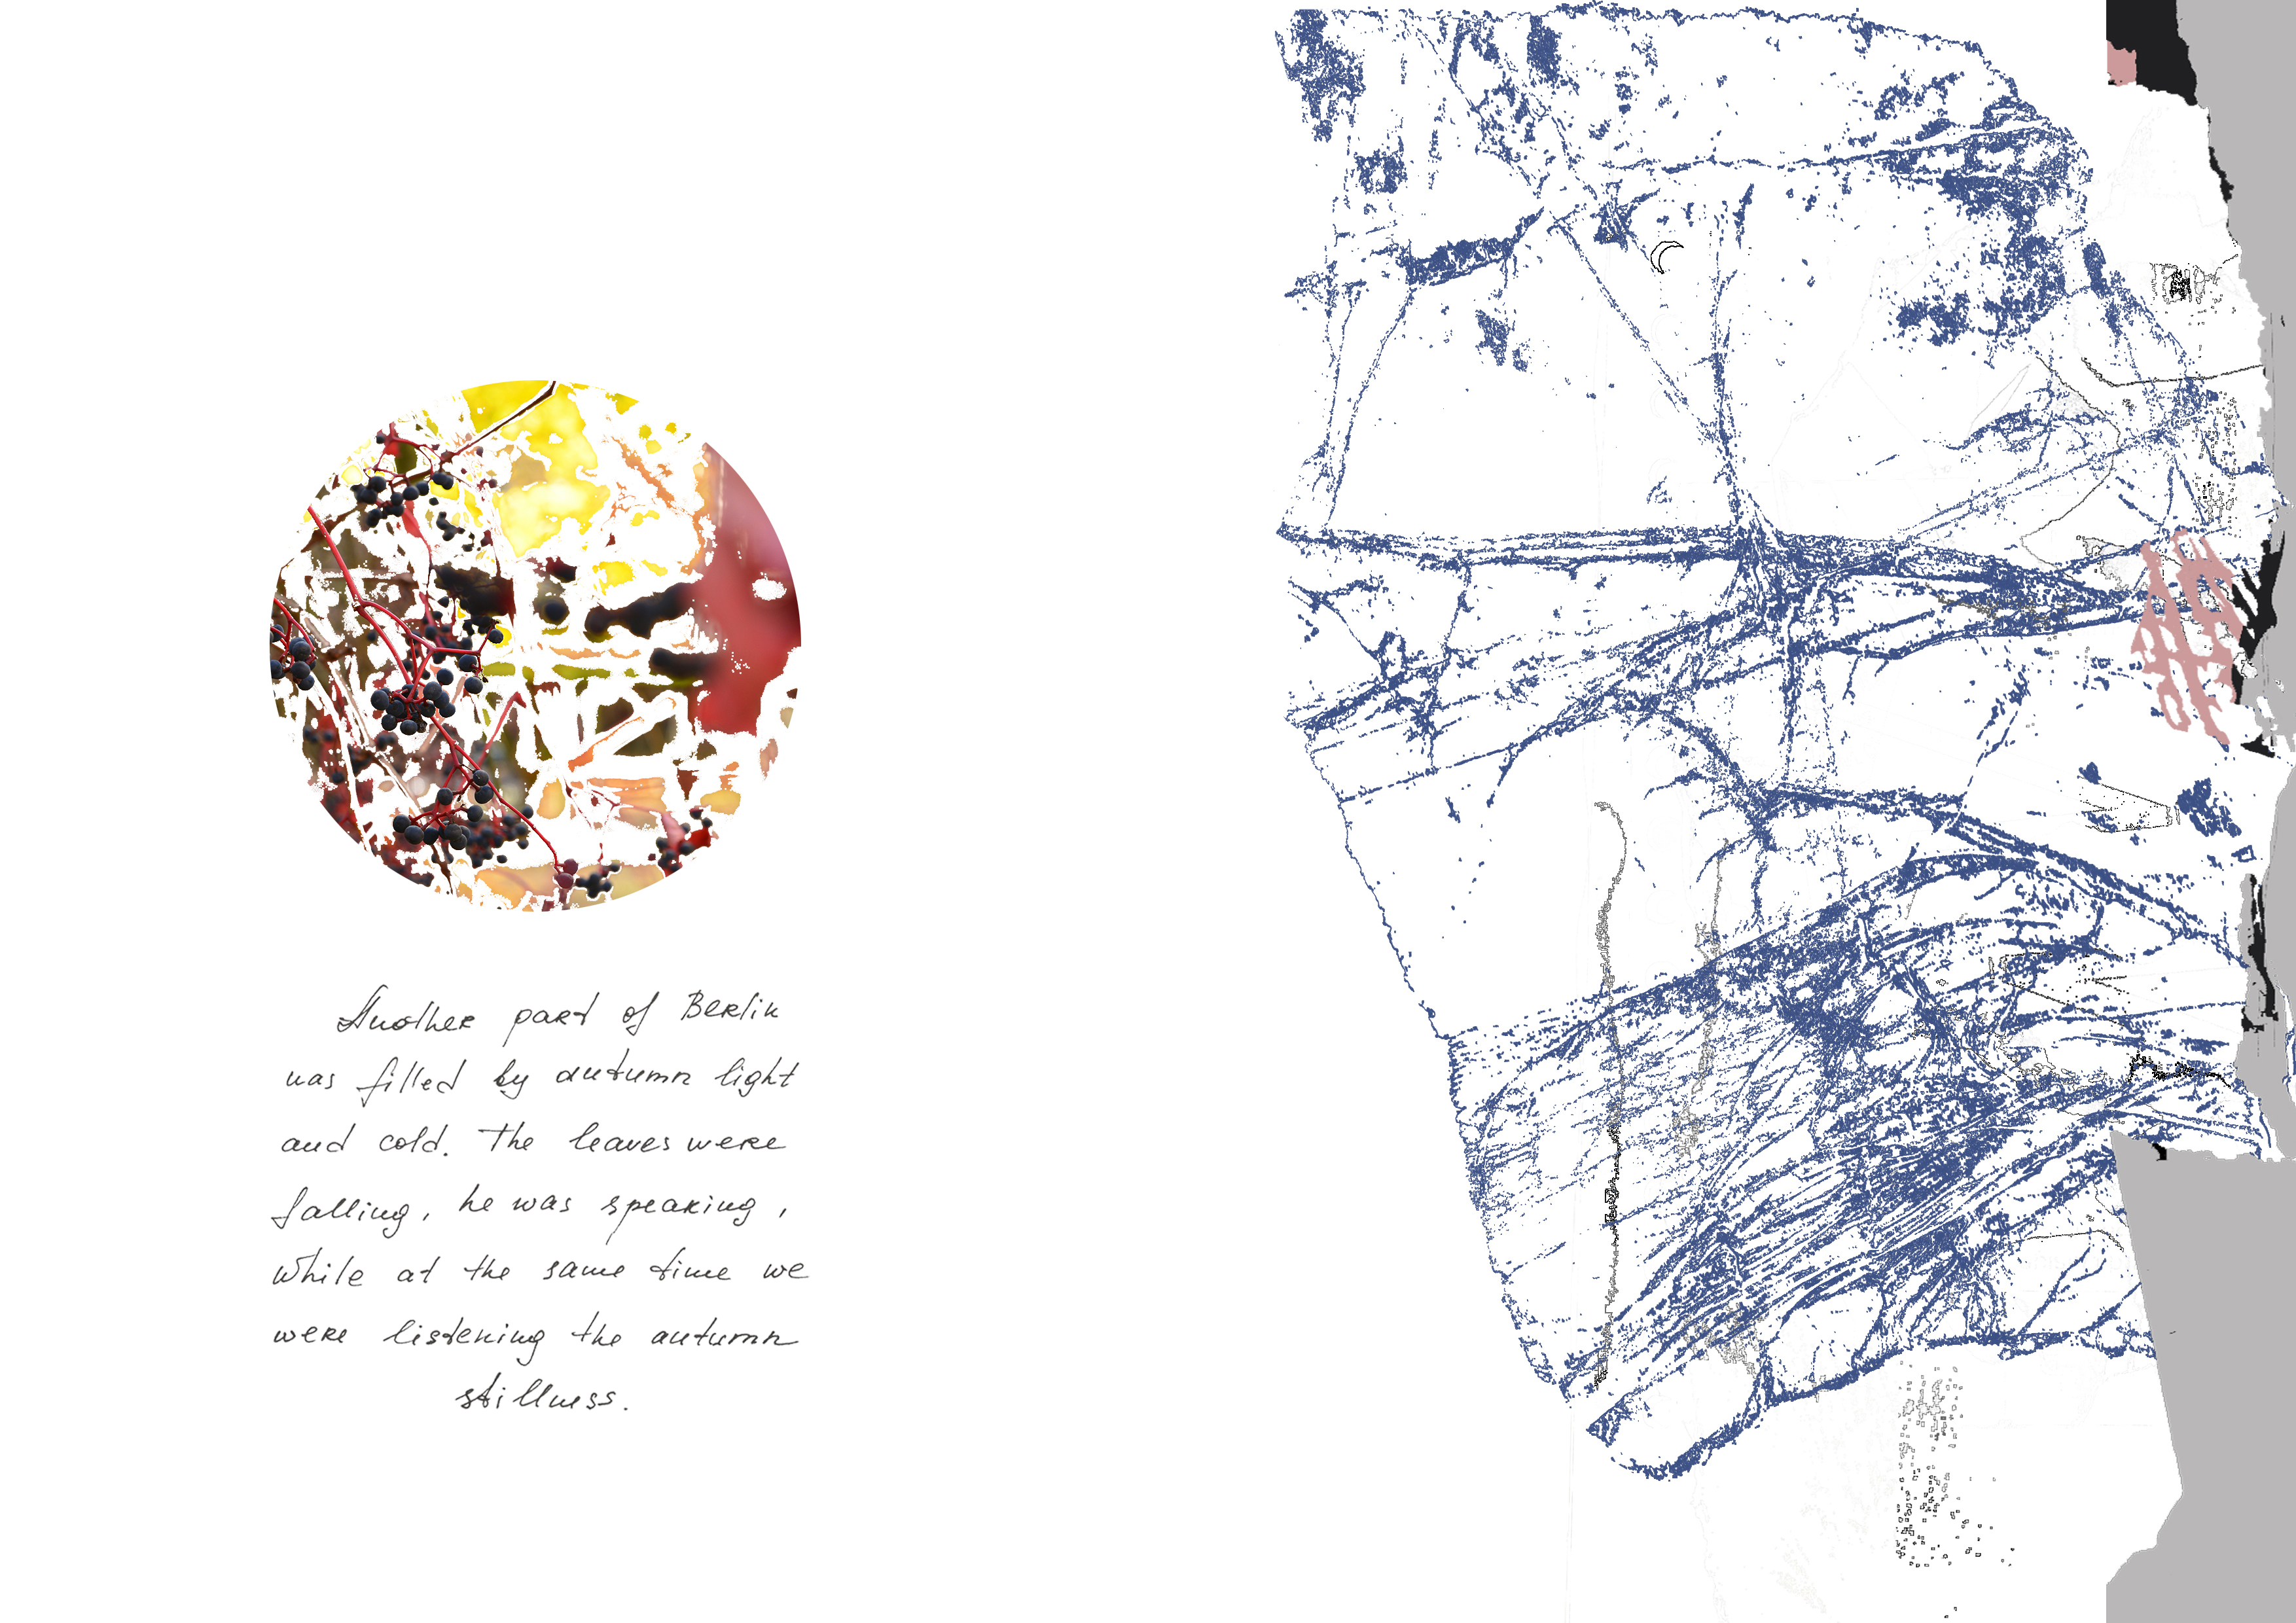 Another part of Berlin
was filled by autumn light
and cold. The leaves were
falling, he was speaking,
while at the same time we
were listening the autumn
stillness.